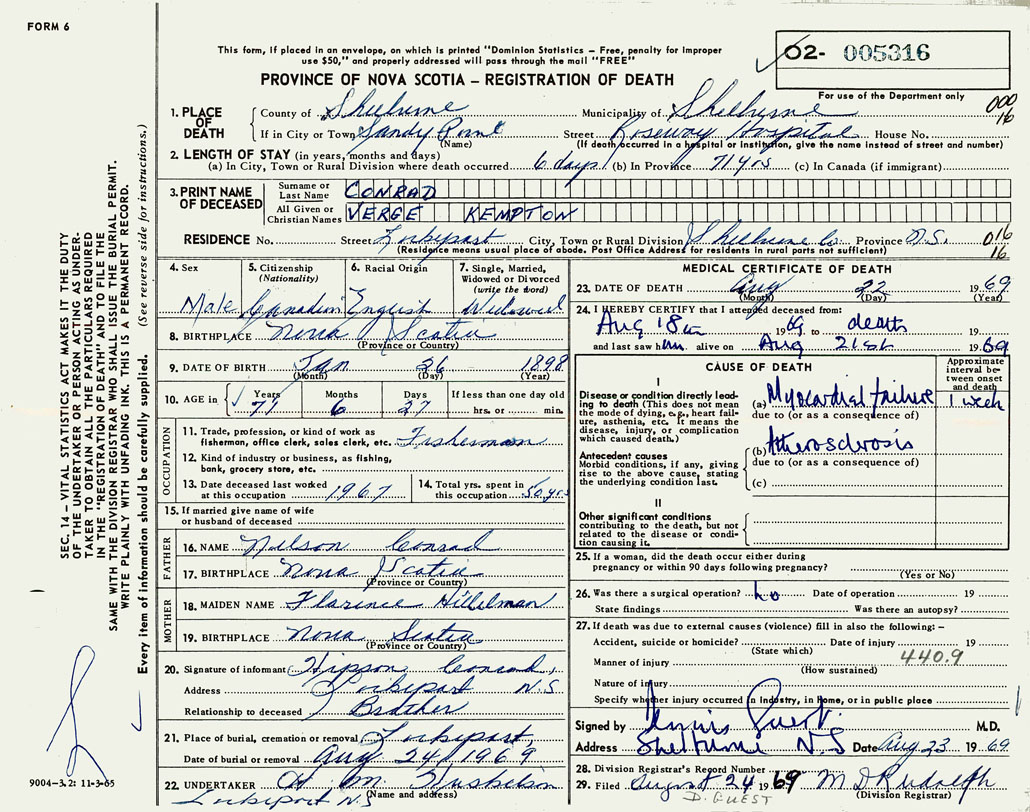 FORM 6
This form, if placed in an envelope, on which is printed "Dominion Statistics – Free, penalty for improper
use $50," and properly addressed will pass through the mail "FREE"
PROVINCE OF NOVA SCOTIA – REGISTRATION OF DEATH
02- 005316
For use of the Department only
000
16
1. PLACE OF DEATH
County of Shelburne Municipality of Shelburne
If in City or Town Sandy Point Street Roseway Hospital House No.
(Name) (If death occurred in a hospital or institution, give the name instead of street and number)
2. LENGTH OF STAY (in years, months and days)
(a) In City, Town or Rural Division where death occurred 6 days (b) In Province 71 yrs (c) In Canada (if immigrant)
3. PRINT NAME OF DECEASED
Surname or Last Name CONRAD
All Given or Christian Names VERGE KEMPTON
RESIDENCE No. Street Lockeport City, Town or Rural Division Shelburne Co. Province N.S.
(Residence means usual place of abode. Post Office Address for residents in rural parts not sufficient)
016
16
4. Sex Male
5. Citizenship (Nationality) Canadian
6. Racial Origin English
7. Single, Married, Widowed or Divorced (write the word) Widowed
8. BIRTHPLACE Nova Scotia
(Province or Country)
9. DATE OF BIRTH Jan 26 1898
(Month) (Day) (Year)
10. AGE in Years 71 Months 6 Days 27 If less than one day old hrs. or min.
OCCUPATION
11. Trade, profession, or kind of work as fisherman, office clerk, sales clerk, etc. Fisherman
12. Kind of industry or business, as fishing, bank, grocery store, etc.
13. Date deceased last worked at this occupation 1967
14. Total yrs. spent in this occupation 50 yrs
15. If married give name of wife or husband of deceased
FATHER
16. NAME Nelson Conrad
17. BIRTHPLACE Nova Scotia
(Province or Country)
MOTHER
18. MAIDEN NAME Florence
19. BIRTHPLACE Nova Scotia
(Province or Country)
20. Signature of informant Hipson Conrad
Address Lockeport N.S.
Relationship to deceased Brother
21. Place of burial, cremation or removal Lockeport,
Date of burial or removal Aug 24/1969
22. UNDERTAKER M.
(Name and address)
Lockeport N.S
MEDICAL CERTIFICATE OF DEATH
23. DATE OF DEATH Aug 22 1969
(Month) (Day) (Year)
24. I HEREBY CERTIFY that I attended deceased from:
Aug 18th 1969 to death 19
and last saw him alive on Aug 21st 1969
CAUSE OF DEATH
Approximate interval between onset and death
I
Disease or condition directly leading to death (This does not mean the mode of dying, e.g., heart failure, asthenia, etc. It means the disease, injury, or complication which caused death.)
(a) Myocardial failure 1 week
due to (or as a consequence of)
Antecedent causes
Morbid conditions, if any, giving rise to the above cause, stating the underlying condition last.
(b) Atherosclrosis
due to (or as a consequence of)
(c)
II
Other significant conditions contributing to the death, but not related to the disease or condition causing it.
25. If a woman, did the death occur either during
pregnancy or within 90 days following pregnancy?
(Yes or No)
26. Was there a surgical operation? no Date of operation 19
State findings Was there an autopsy?
27. If death was due to external causes (violence) fill in also the following: –
Accident, suicide or homicide? Date of injury 19
(State which)
Manner of injury 440.9
(How sustained)
Nature of injury
Specify whether injury occurred in industry, in home, or in public place
Signed by Guest M.D.
Address Shelburne N S Date Aug 23 1969
28. Division Registrar's Record Number
29. Filed August 24 1969 M D Rudolph
(Division Registrar)
D. GUEST
SEC. 14 – VITAL STATISTICS ACT MAKES IT THE DUTY
OF THE UNDERTAKER OR PERSON ACTING AS UNDER-
TAKER TO OBTAIN ALL THE PARTICULARS REQUIRED
IN THE "REGISTRATION OF DEATH" AND TO FILE THE
SAME WITH THE DIVISION REGISTRAR WHO SHALL ISSUE THE BURIAL PERMIT.
WRITE PLAINLY WITH UNFADING INK. THIS IS A PERMANENT RECORD.
Every item of information should be carefully supplied. (See reverse side for instructions.)
9004-3.2: 11-3-65